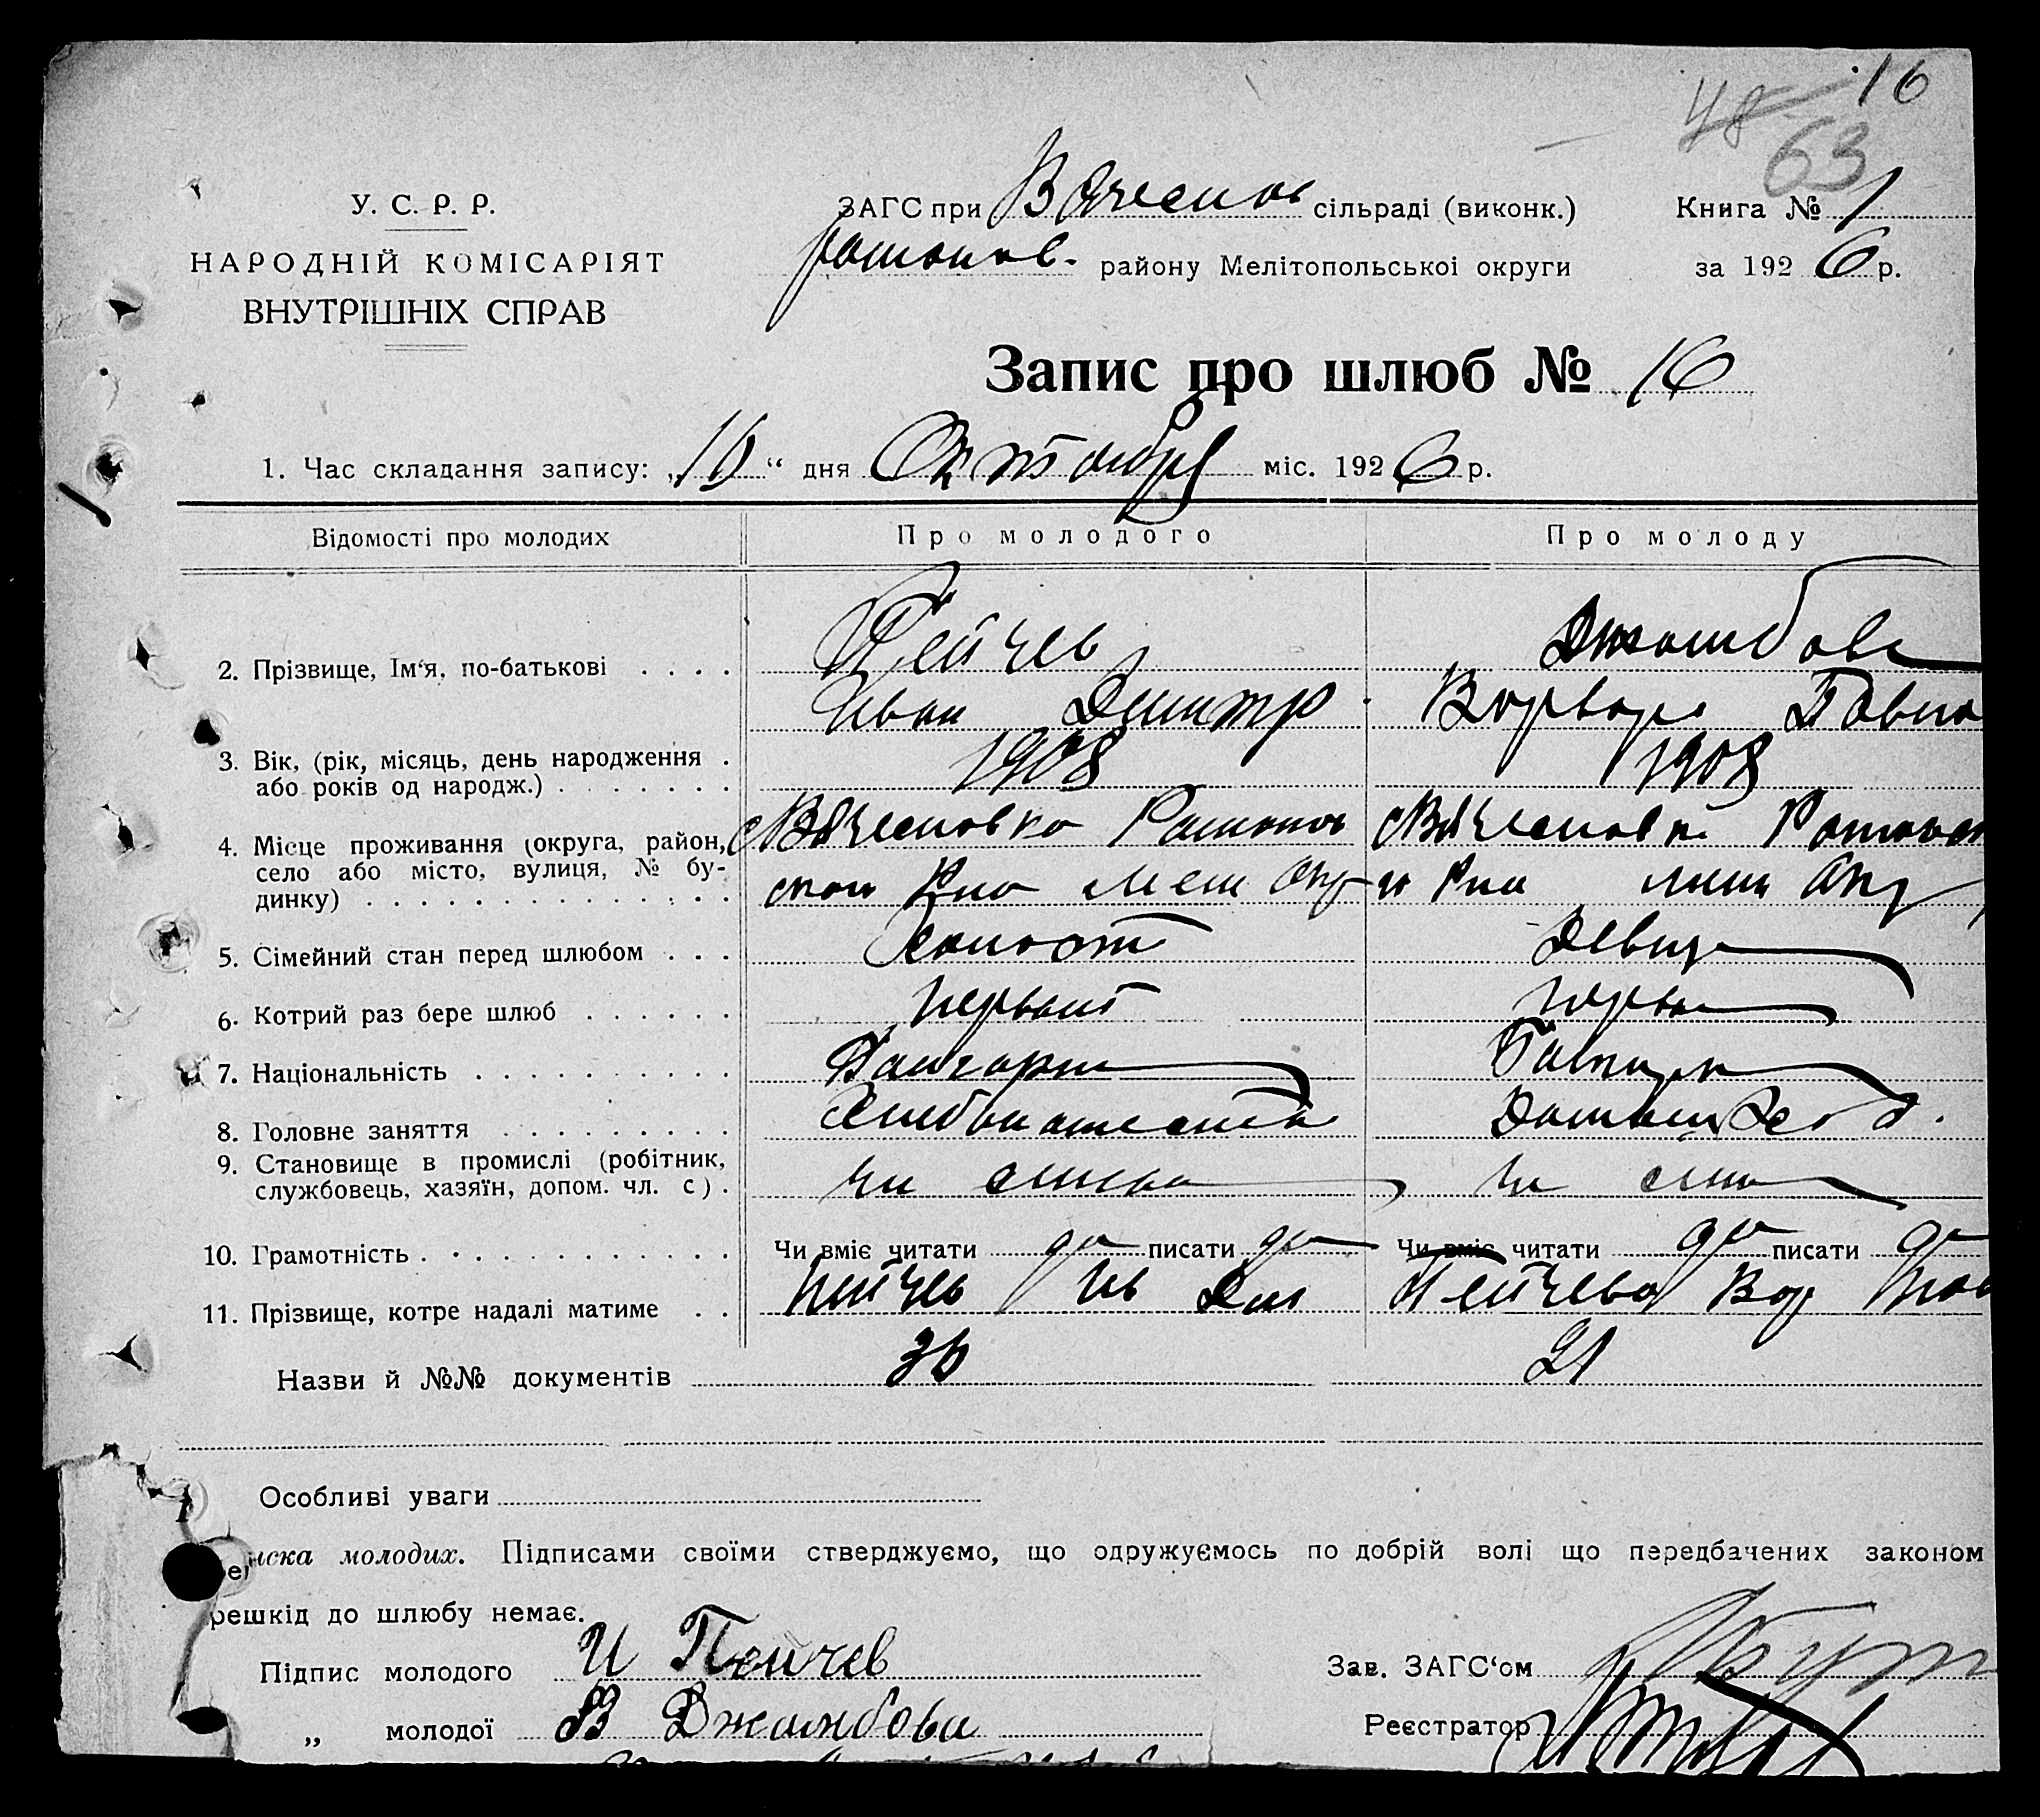 16
48
63
У. С. Р. Р.
НАРОДНІЙ КОМІСАРІЯТ
ВНУТРІШНІХ СПРАВ
ЗАГС при Вячеслов сільраді (виконк.) Книга № 1
району Мелітопольської округи за 1926 р.
Запис про шлюб № 16
1. Час складання запису: „ “ дня Октобря міс. 1926 р.
Відомості про молодих Про молодого Про молоду
2. Прізвище, Ім‘я, по-батькові Пейчев Джамбова
Иван Дмитр. Варвара Павло
3. Вік, (рік, місяць, день народження 1908 1908
або років од народж.)
4. Місце проживання (округа, район, с Вячесловка Романов с Вячесловка Романов
село або місто, вулиця, № бу- Рна Мел Окр Рна Окр
динку)
5. Сімейний стан перед шлюбом Холост Девица
6. Котрий раз бере шлюб Первый Перва
7. Національність Болгарин Болгарк
8. Головне заняття Хлебопашество Домаш
9. Становище в промислі (робітник,
службовець, хазяїн, допом. чл. с). чл семьи чл семь
10. Грамотність Чи вміє читати да писати да Чи вміє читати да писати да
11. Прізвище, котре надалі матиме Пейчев Ив Дм Пейчева Вар Пав
Назви й №№ документів 36 21
Особливі уваги
иска молодих. Підписами своїми стверджуємо, що одружуємось по добрій волі що передбачених законом
решкід до шлюбу немає.
Підпис молодого И Пейчев Зав. ЗАГС‘ом
„ молодої В Джамбова Реєстратор